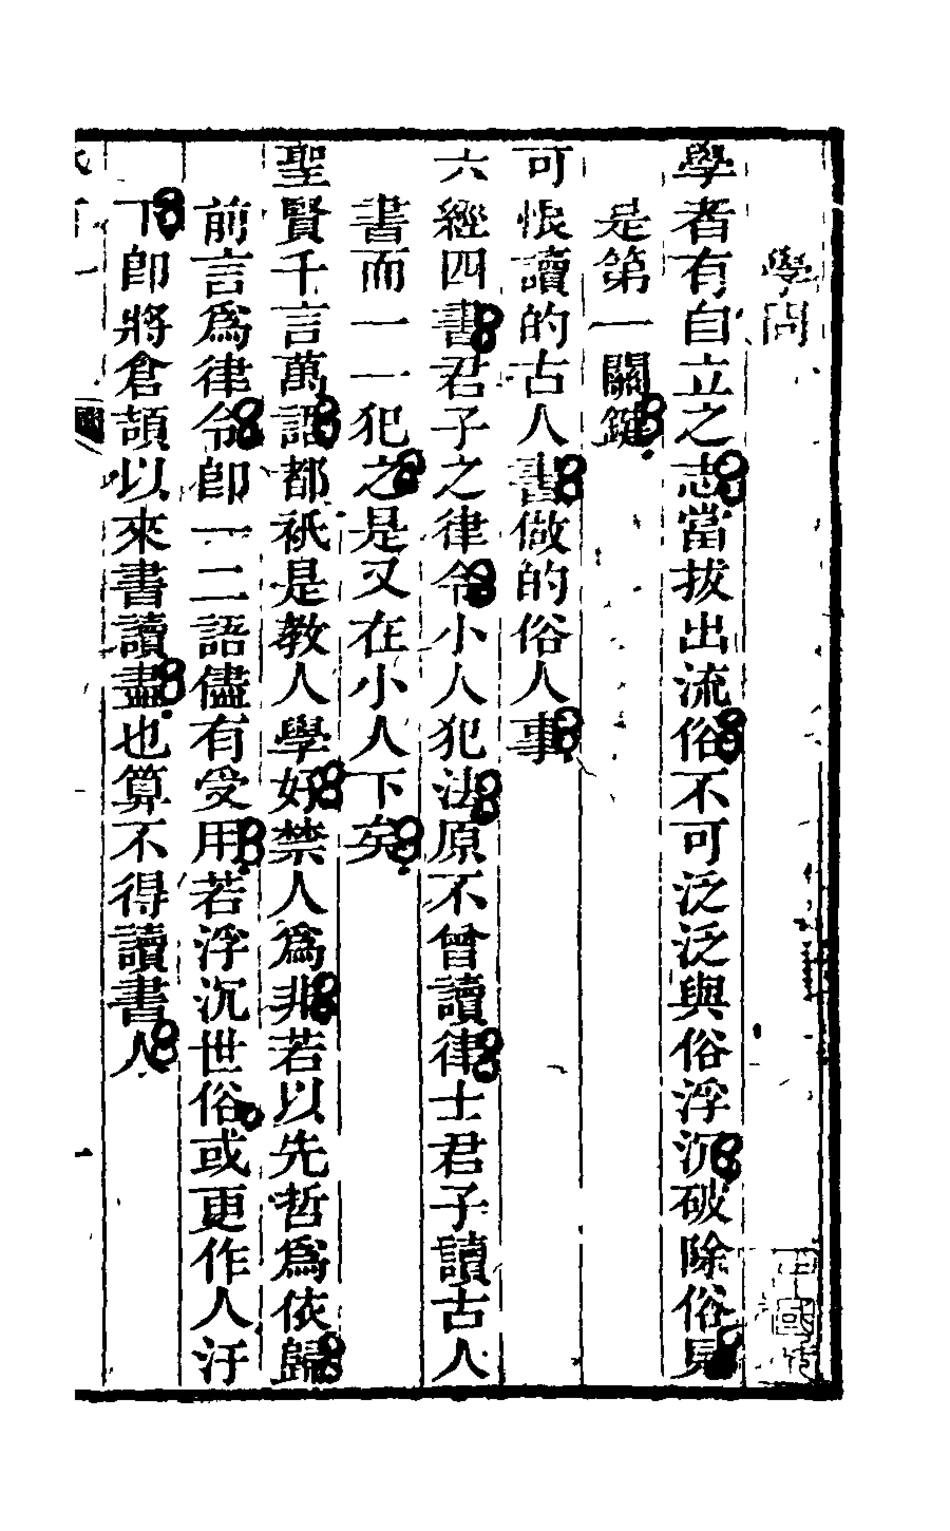 學問
學者有自立之志當拔出流俗不可泛泛與俗浮沉破除俗見
是第一關鍵
可恨讀的古人書做的俗人事
六經四書君子之律令小人犯法原不曾讀律士君子讀古人
書而一一犯之是又在小人下矣
聖賢千言萬語都祇是教人學好禁人爲非若以先哲爲依歸
前言爲律令卽一二語儘有受用若浮沉世俗或更作人汙
下卽將倉頡以來書讀盡也算不得讀書人